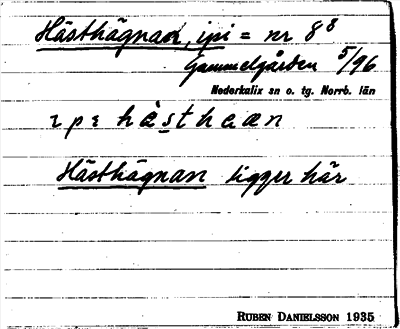 Hästhägnan, ipi = nr 8⁸
Gammelgården 5/96
Nederkalix sn o. tg. Norrb. län
Hästhägnan ligger här
RUBEN DANIELSSON 1935